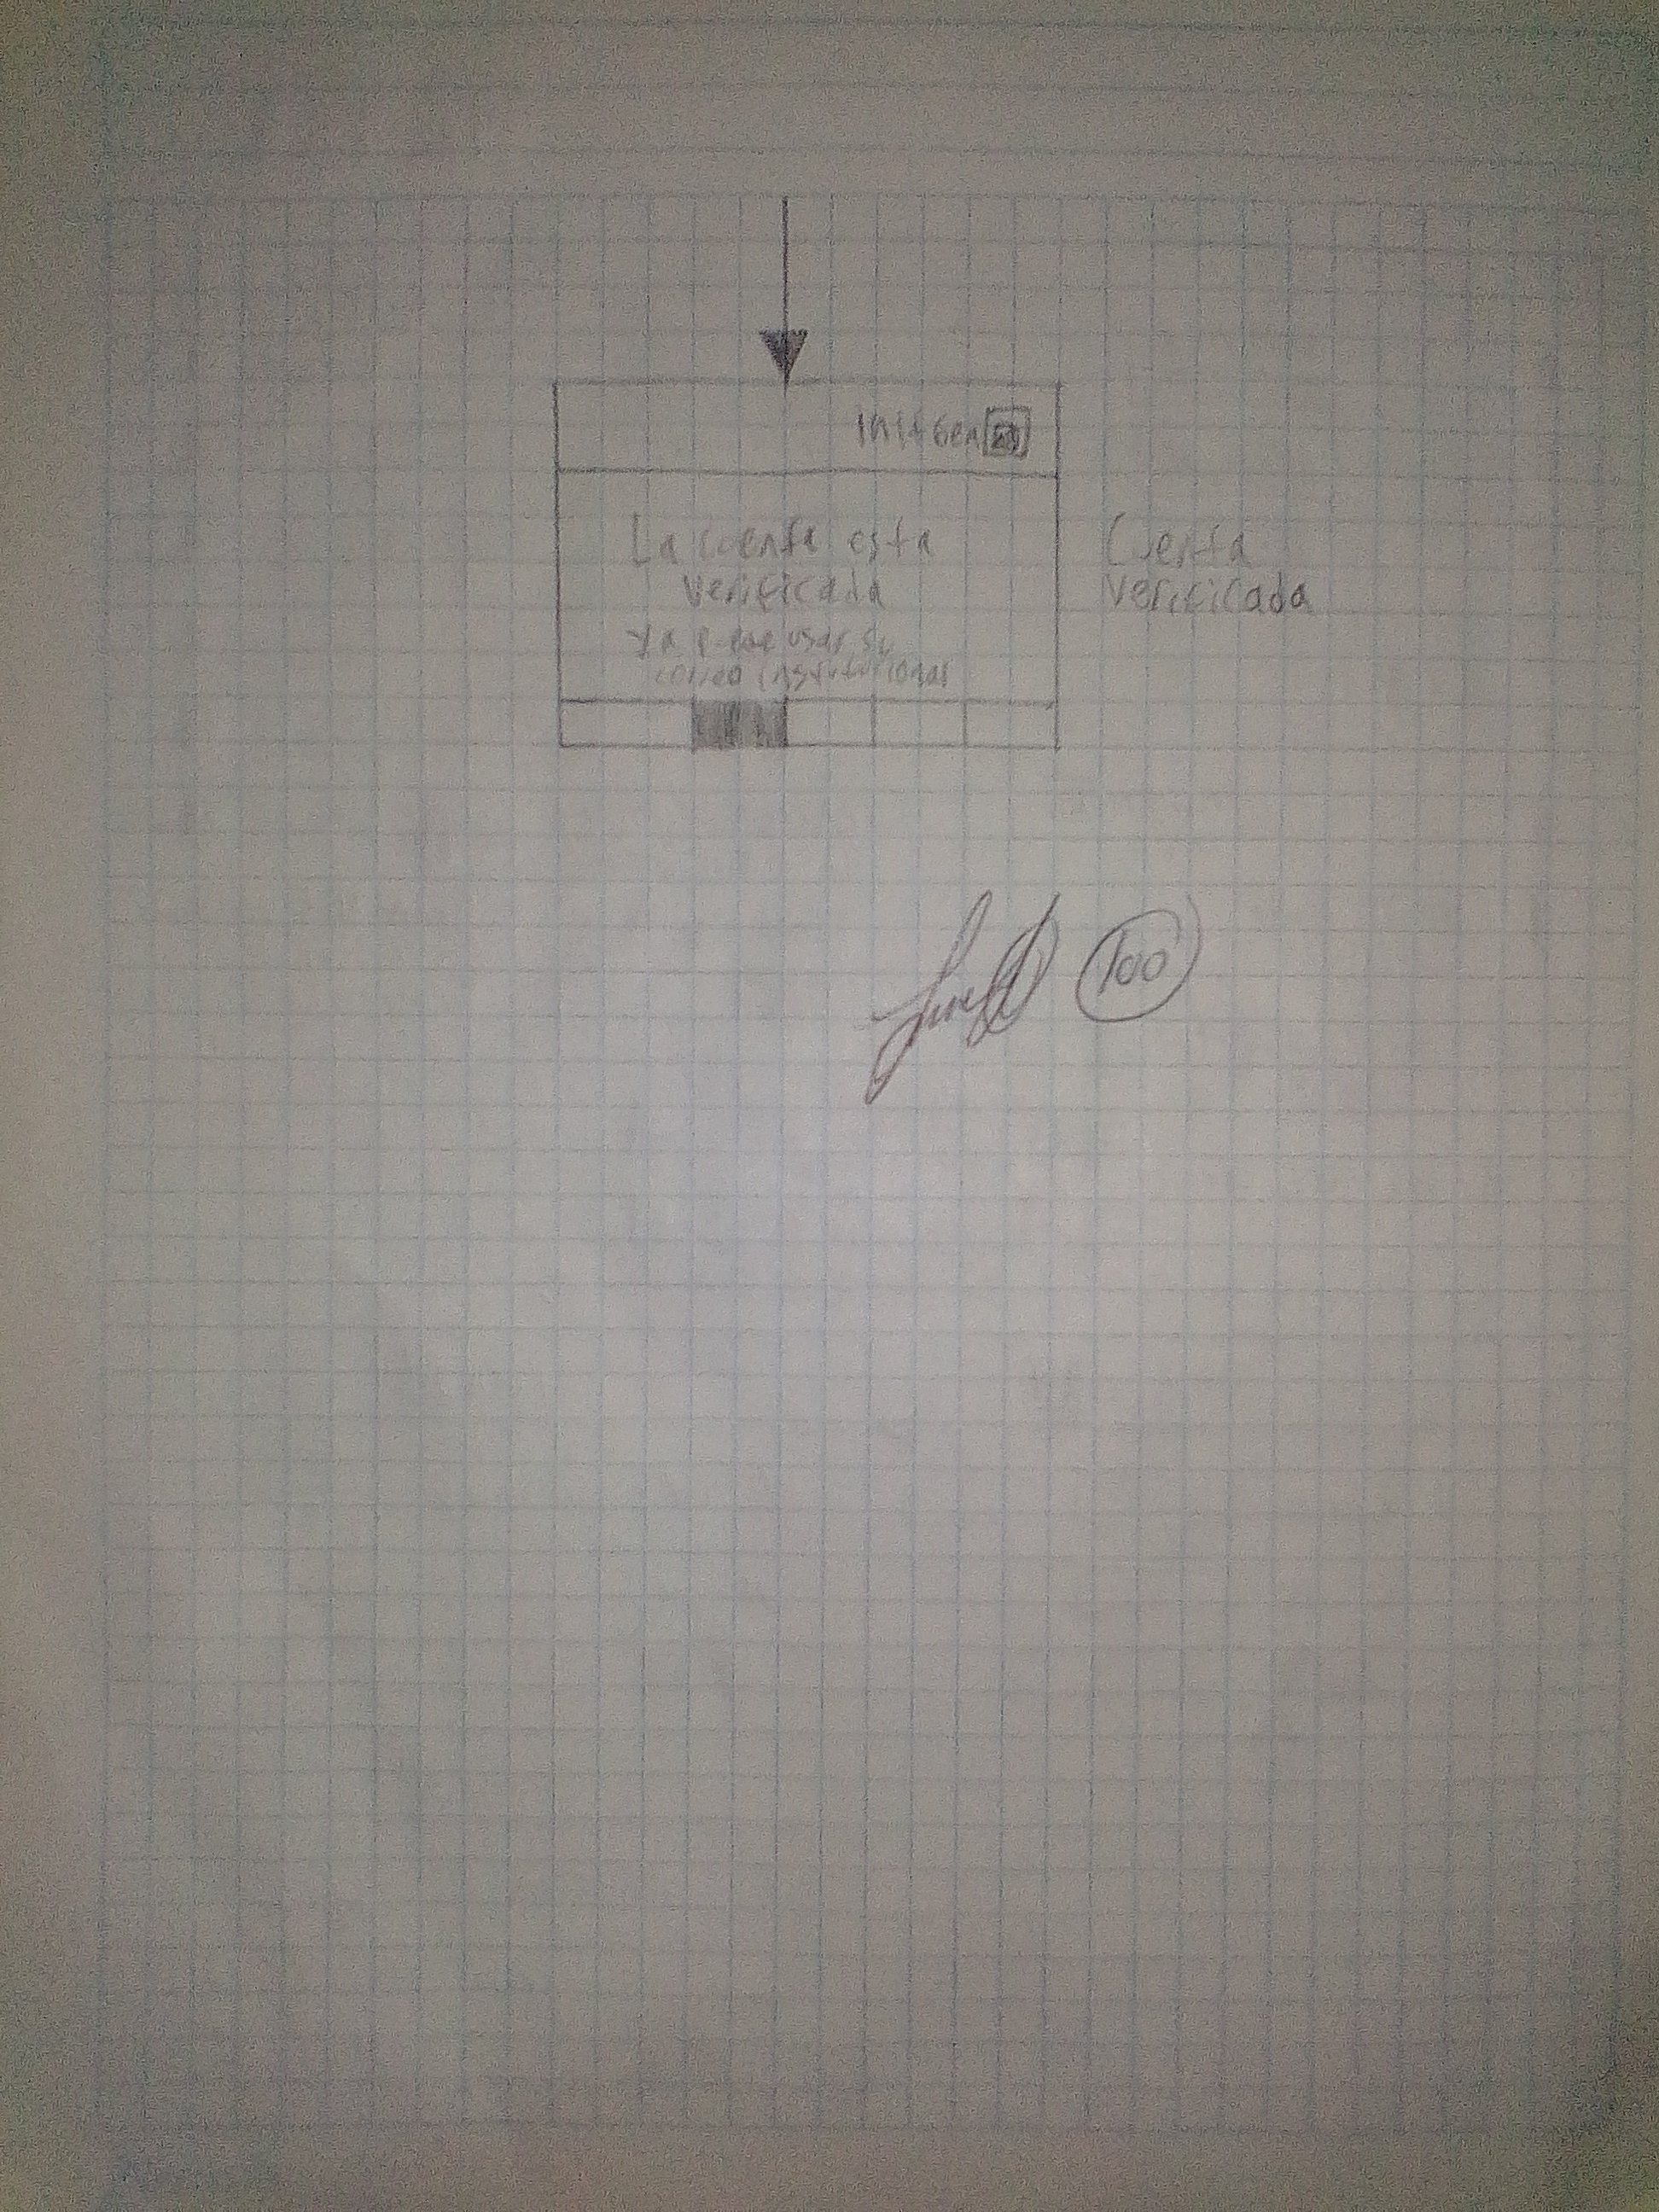 La cuenta esta
verificada
ya puede usar su
correo institucional
Cuenta
verificada
100